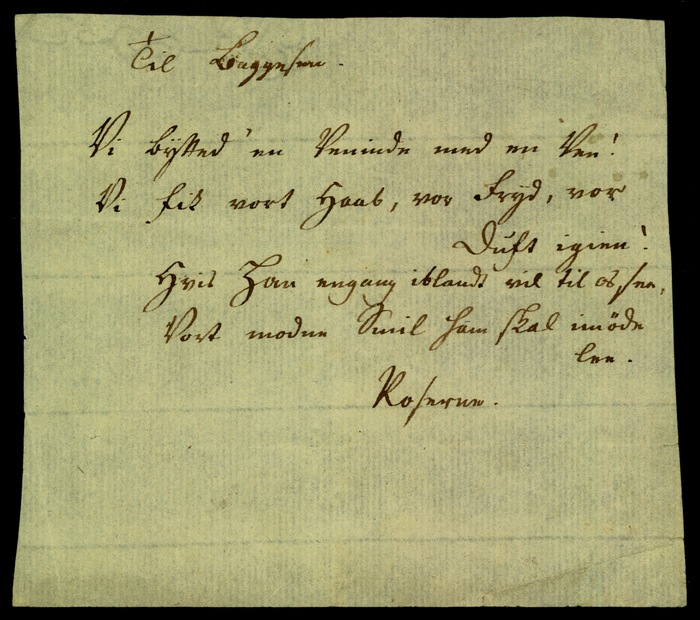 Til Baggesen.
Vi bytted' en Veninde med en Ven!
Vi fik vort Haab, vor Fryd, vor
Duft igien!
Hvis Han engang iblandt vil til os see,
Vort modne Smil ham skal imöde
lee.
Roserne.